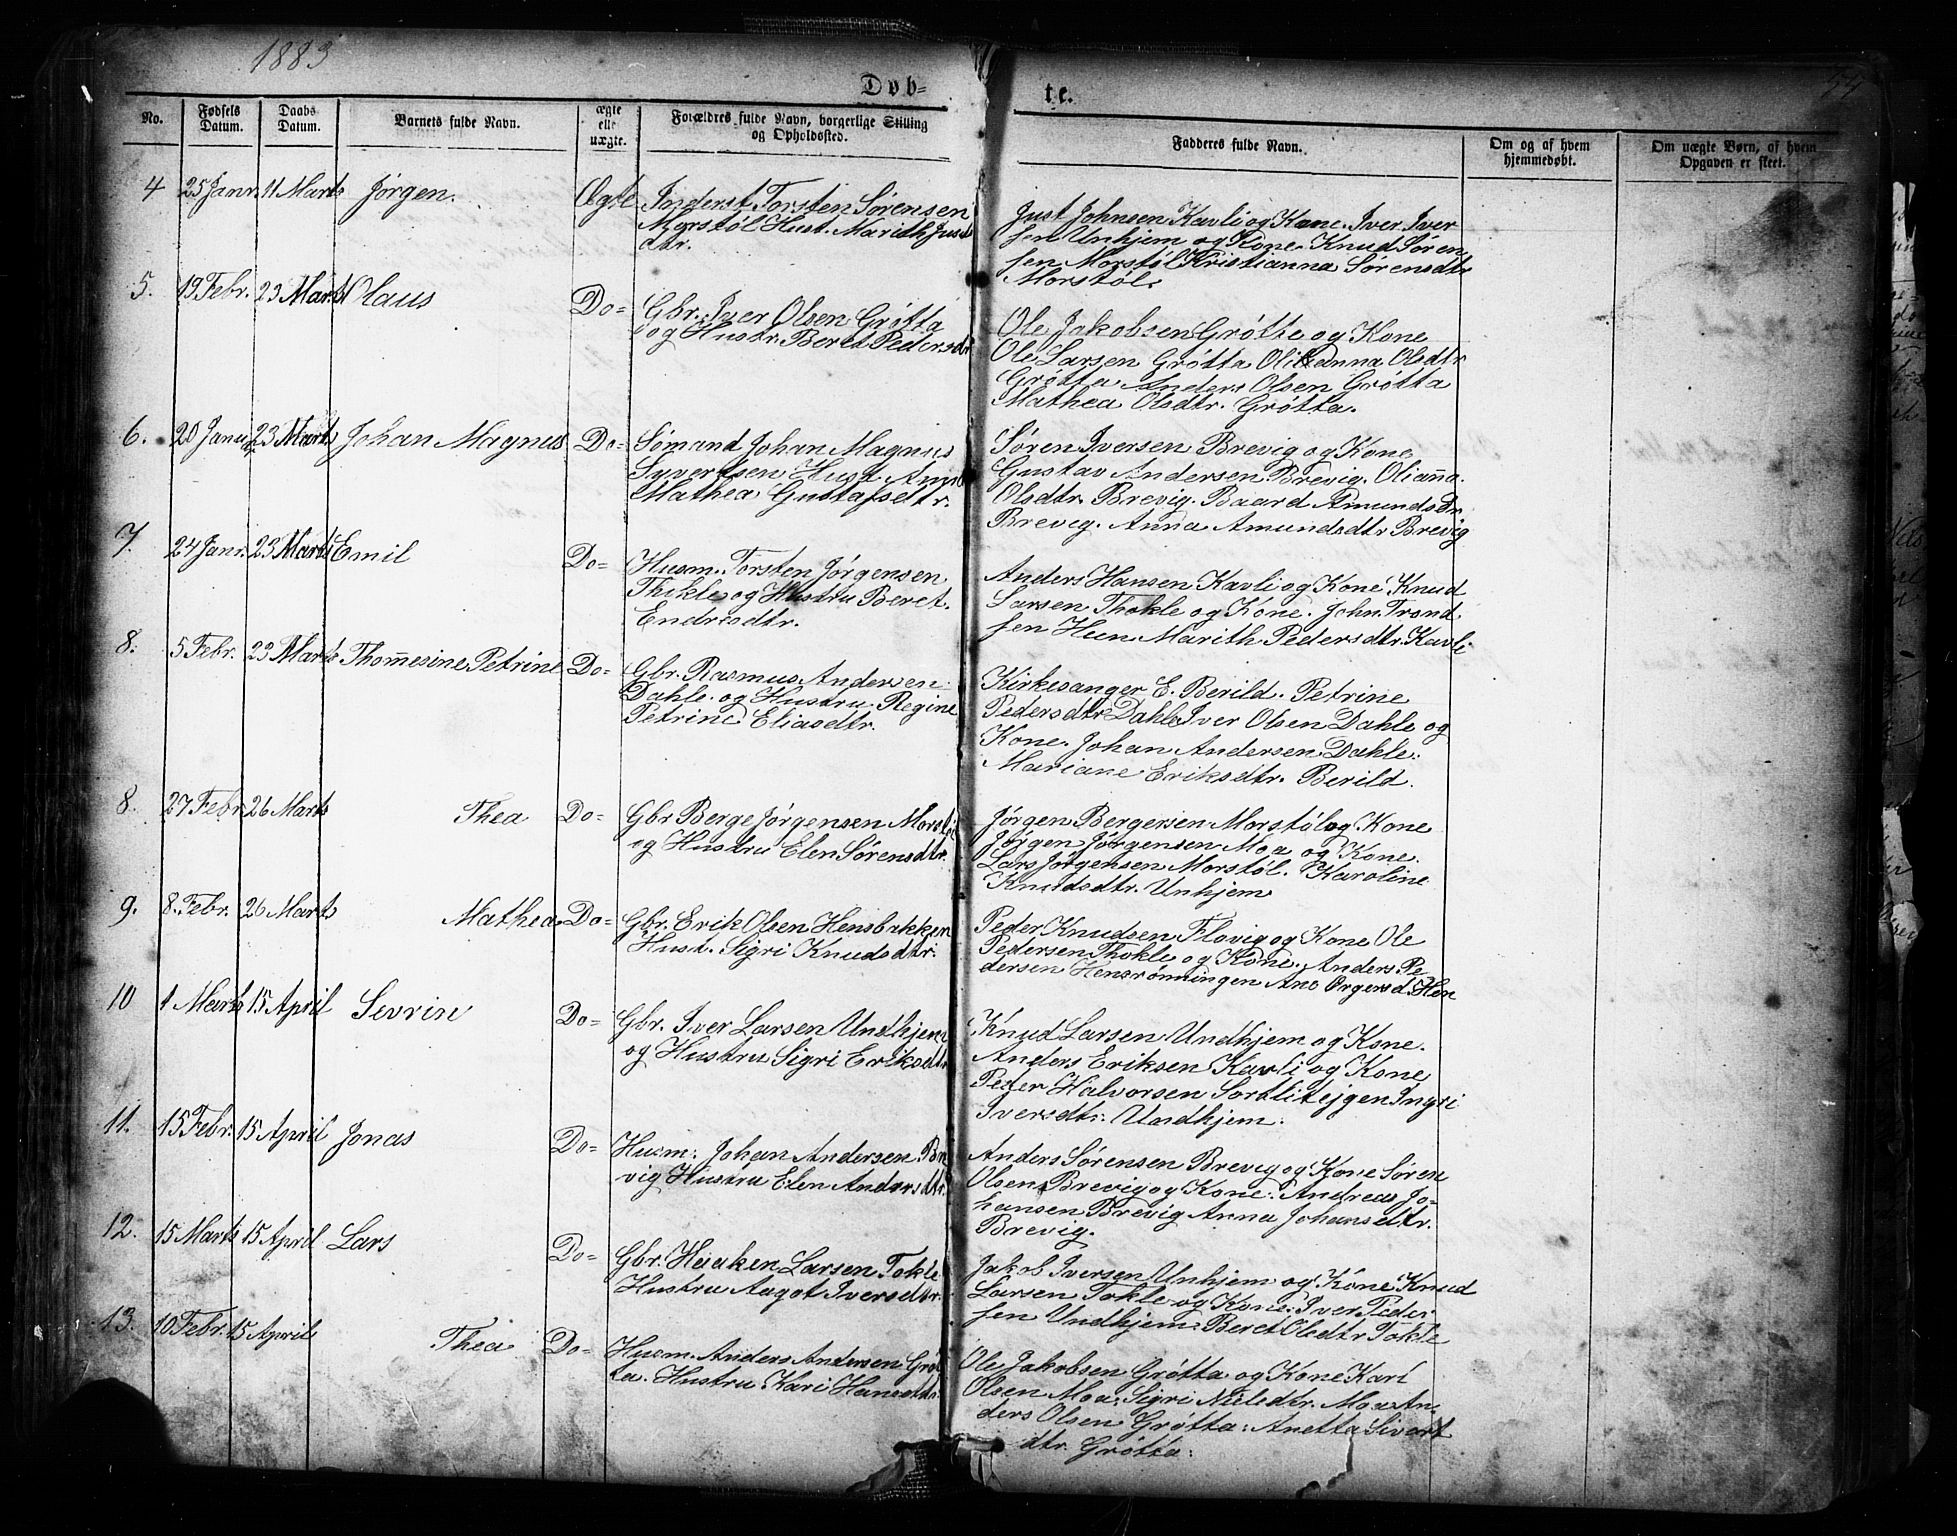 1883
54
Døb-
te.
No.
Fødsels Datum.
Daabs Datum.
Barnets fulde Navn.
ægte elle uægte.
Forældres fulde Navn, borgerlige Stilling og Opholdssted.
Fadderes fulde Navn.
Om og af hvem hjemmedøbt.
Om uægte Børn, af hvem Opgaven er skeet.
4 25 Janr. 11 Marts Jørgen. Ægte Inderst Torsten Sørensen
Morstøl Hust. Marith Just
dtr.
Just Johnsen Kavli og Kone. Iver Iver
sen Unhjem og Kone. Knud Søren
sen Morstøl Kristianna Sørensdtr
Morstøl.
5. 19 Febr. 23 Marts Olaus Do= Gbr. Iver Olsen Grøtta
og Hustr. Beret Pedersdtr
Ole Jakobsen Grøtte og Kone
Ole Larsen Grøtta Olikanna Olsdtr
Grøtta Anders Olsen Grøtta
Mathea Olsdtr. Grøtta.
6. 20 Janu 23 Marts Johan Magnus Do= Sømand Johan Magnus
Syvertsen Hust Anne
Mathea Gustafsdtr.
Søren Iversen Brevig og Kone
Gustav Andersen Brevig. Olianna
Olsdtr. Brevig. Baard Amundsen
Brevig. Anna Amundsdtr Brevig
7. 24 Janr. 23 Marts Emil Do= Husm. Torsten Jørgensen
Thokle og Hustru Beret.
Endresdtr.
Anders Hansen Kavli og Kone Knud
Larsen Thokle og Kone. John Trond
sen Hen Marith Pedersdtr. Kavli
8. 5 Febr. 23 Marts Thomesine Petrine Do= Gbr. Rasmus Andersen
Dahle. og Hustru Regine
Petrine Eliasdtr.
Kirkesanger E. Berild. Petrine
Pedersdtr Dahle Iver Olsen Dahle og
Kone. Johan Andersen Dahle.
Mariane Eriksdtr. Berild.
8. 27 Febr 26 Marts Thea Do= Gbr Berge Jørgensen Morstøl
og Hustru Elen Sørensdtr.
Jørgen Bergersen Morstøl og Kone
Jørgen Jørgensen Moa og Kone.
Lars Jørgensen Morstøl. Karoline
Knudsdtr. Unhjem
9. 8. Febr. 26 Marts Mathea Do= Gbr. Erik Olsen Hensbakken
Hust. Sigri Knudsdtr.
Peder Knudsen Flovig og Kone Ole
Pedersen Thokle og Kone. Anders Pe
dersen Hensrønningen Ane Hen
10 1 Marts 15 April Sevrin Do= Gbr. Iver Larsen Undhjem
og Hustru Sigri Eriksdtr
Knud Larsen Undhjem og Kone.
Anders Eriksen Kavli og Kone
Peder Halvorsen Ingri
Iversdtr. Undhjem.
11. 15 Febr. 15 April Jonas Do= Husm. Johan Andersen Bre
vig Hustru Elen Andersdtr.
Anders Sørensen Brevig og Kone Søren
Olsen Brevig og Kone. Andreas Jo-
hansen Brevig Anna Johansdtr.
Brevig.
12. 15 Marts 15 April Lars Do= Gbr. Haaken Larsen Tokle
Hustru Aagot Iversdtr.
Jakob Iversen Unhjem og Kone Knud
Larsen Tokle og Kone. Iver Peder
sen Undhjem. Beret Olsdtr Tokle
13. 10 Febr. 15 April Thea Do= Husm. Anders Andersen Grøt
ta. Hustru Kari Hansdtr.
Ole Jakobsen Grøtta og Kone Karl
Olsen Moa. Sigri Nilsdtr. Moa An-
ders Olsen Grøtta. Anetta Sivert
dtr Grøtta.